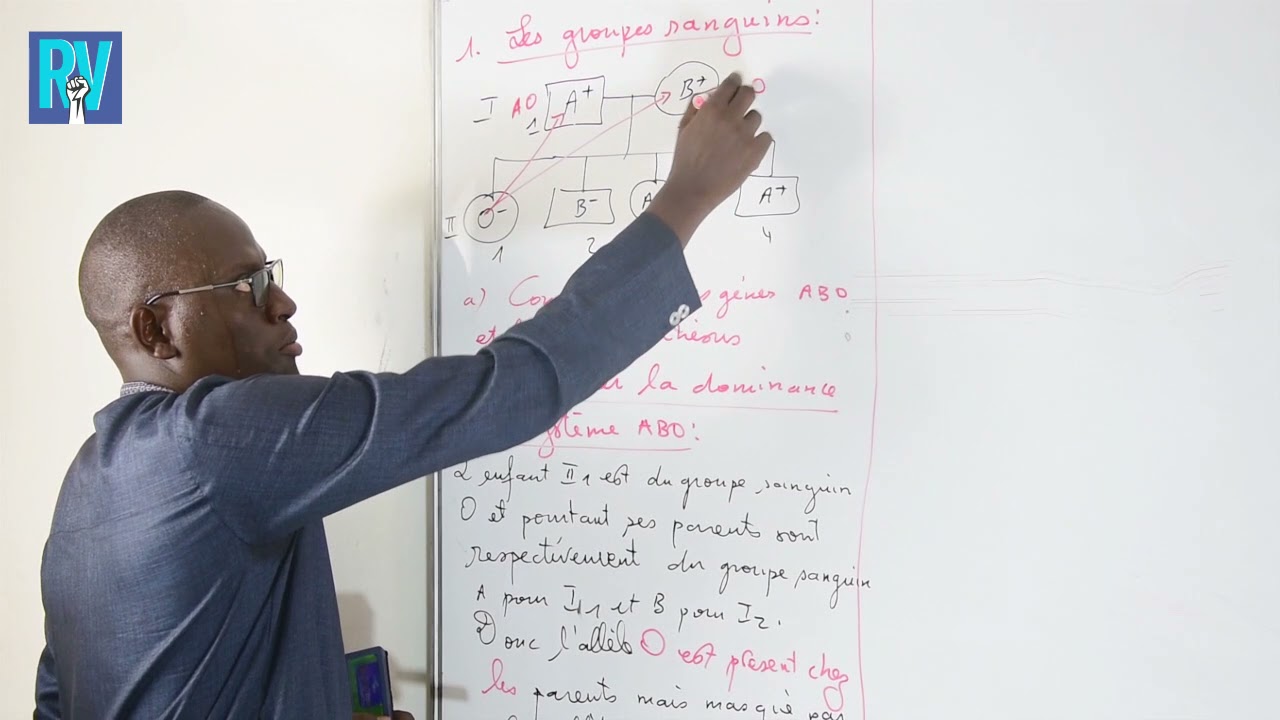 RV
1. Les groupes sanguins:
I AO A+ B+ O
1
II O- B- A A+
1 2 4
a) gènes ABO
et
la dominance
ABO:
L'enfant II1 est du groupe sanguin
O et pourtant ses parents sont
respectivement du groupe sanguin
A pour I1 et B pour I2.
Donc l'allèle O est présent chez
les parents mais masqué par